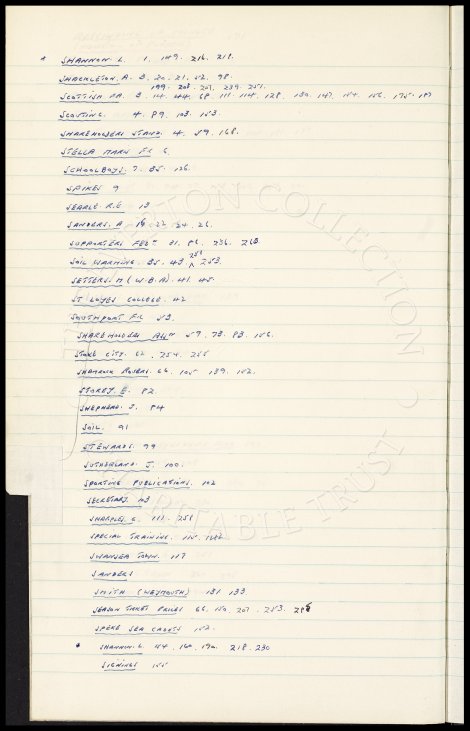 * SHANNON L. 1. 149. 216. 218.
SHACKLETON. A. 3. 20. 21. 52. 98.
199. 208. 207. 239. 251.
SCOTTISH FA. 3. 14. 44. 68. 111. 114. 128. 130. 147. 154. 156. 175.
SCOUTING. 4. 89. 103. 153.
SHAREHOLDERS STAND. 4. 59. 168.
STELLA MARIS FC 6.
SCHOOLBOYS. 7. 85. 126.
SPIKES 9
SEARLE. R.E. 13
SANDERS. A 19 22 24. 26.
SUPPORTERS FEDN 31. 86. 236. 263
SOIL WARMING. 35. 43 253.
SETTERS. M (W.B.A). 41. 45.
ST LOYES COLLEGE. 42
SOUTHPORT FC 53.
SHAREHOLDERS ASSN 57. 73. 83. 156.
STOKE CITY. 62. 254. 255
SHAMROCK ROVERS. 64. 105 139. 152.
STOREY. E. 82
SHEPHERD. J. 84
SOIL. 91
STEWARDS. 99
SUTHERLAND. J. 100.
SPORTING PUBLICATIONS. 102
SECRETARY. 103
SHARPLES G. 111. 251
SPECIAL TRAINING. 115.
SWANSEA TOWN. 117
SANDERS
SMITH (WEYMOUTH) 131. 133
SEASON TICKET PRICES 66. 150. 207. 253.
SPEKE SEA CADETS 152.
* SHANNON. L. 54. 160. 190. 218. 230
SIGNINGS 155